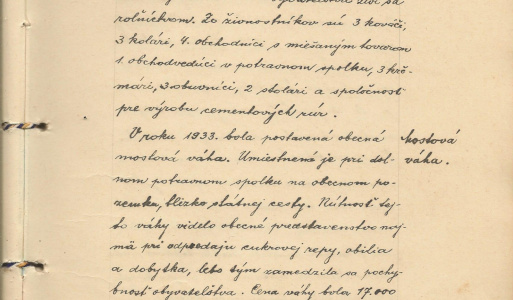 roľníctvom. Zo živnostníkov sú 3 kováči,
3 kolári, 4. obchodníci s miešaným tovarom
1. obchodvedúci v potravnom spolku, 3 krč-
mári, 3 obuvníci, 2 stolári a spoločnosť
pre výrobu cementových rúr.
V roku 1933. bola postavená obecná
mostová váha. Umiestnená je pri dol-
nom potravnom spolku na obecnom po-
zemku, blízko, štátnej cesty. Nútnosť tej-
to váhy videlo obecné predstavenstvo naj-
mä pri odpredaju cukrovej repy, obilia
a dobytka, lebo tým zamedzila sa pochy-
bnosť obyvateľstva. Cena váhy bola 17.000
Mostová
váha.